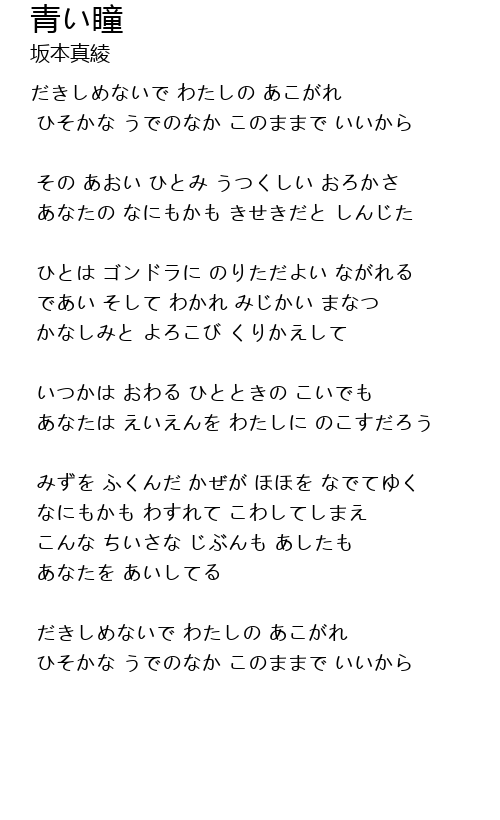 青い瞳
坂本真綾
だきしめないで わたしの あこがれ
ひそかな うでのなか このままで いいから
その あおい ひとみ うつくしい おろかさ
あなたの なにもかも きせきだと しんじた
ひとは ゴンドラに のりただよい ながれる
であい そして わかれ みじかい まなつ
かなしみと よろこび くりかえして
いつかは おわる ひとときの こいでも
あなたは えいえんを わたしに のこすだろう
みずを ふくんだ かぜが ほほを なでてゆく
なにもかも わすれて こわしてしまえ
こんな ちいさな じぶんも あしたも
あなたを あいしてる
だきしめないで わたしの あこがれ
ひそかな うでのなか このままで いいから